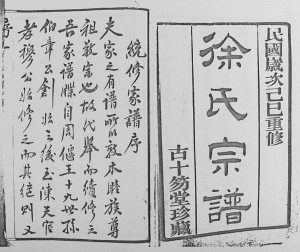 民國歲次己巳重修
徐氏宗譜
古十笏堂珍藏
統修家譜序
夫家之有譜所以敦本睦族尊
祖敦宗也故代舉而續修之
吾家譜牒自周偃王十九世孫
伯章公創始之後至陳天官
孝穆公始修之而其繼則又
序